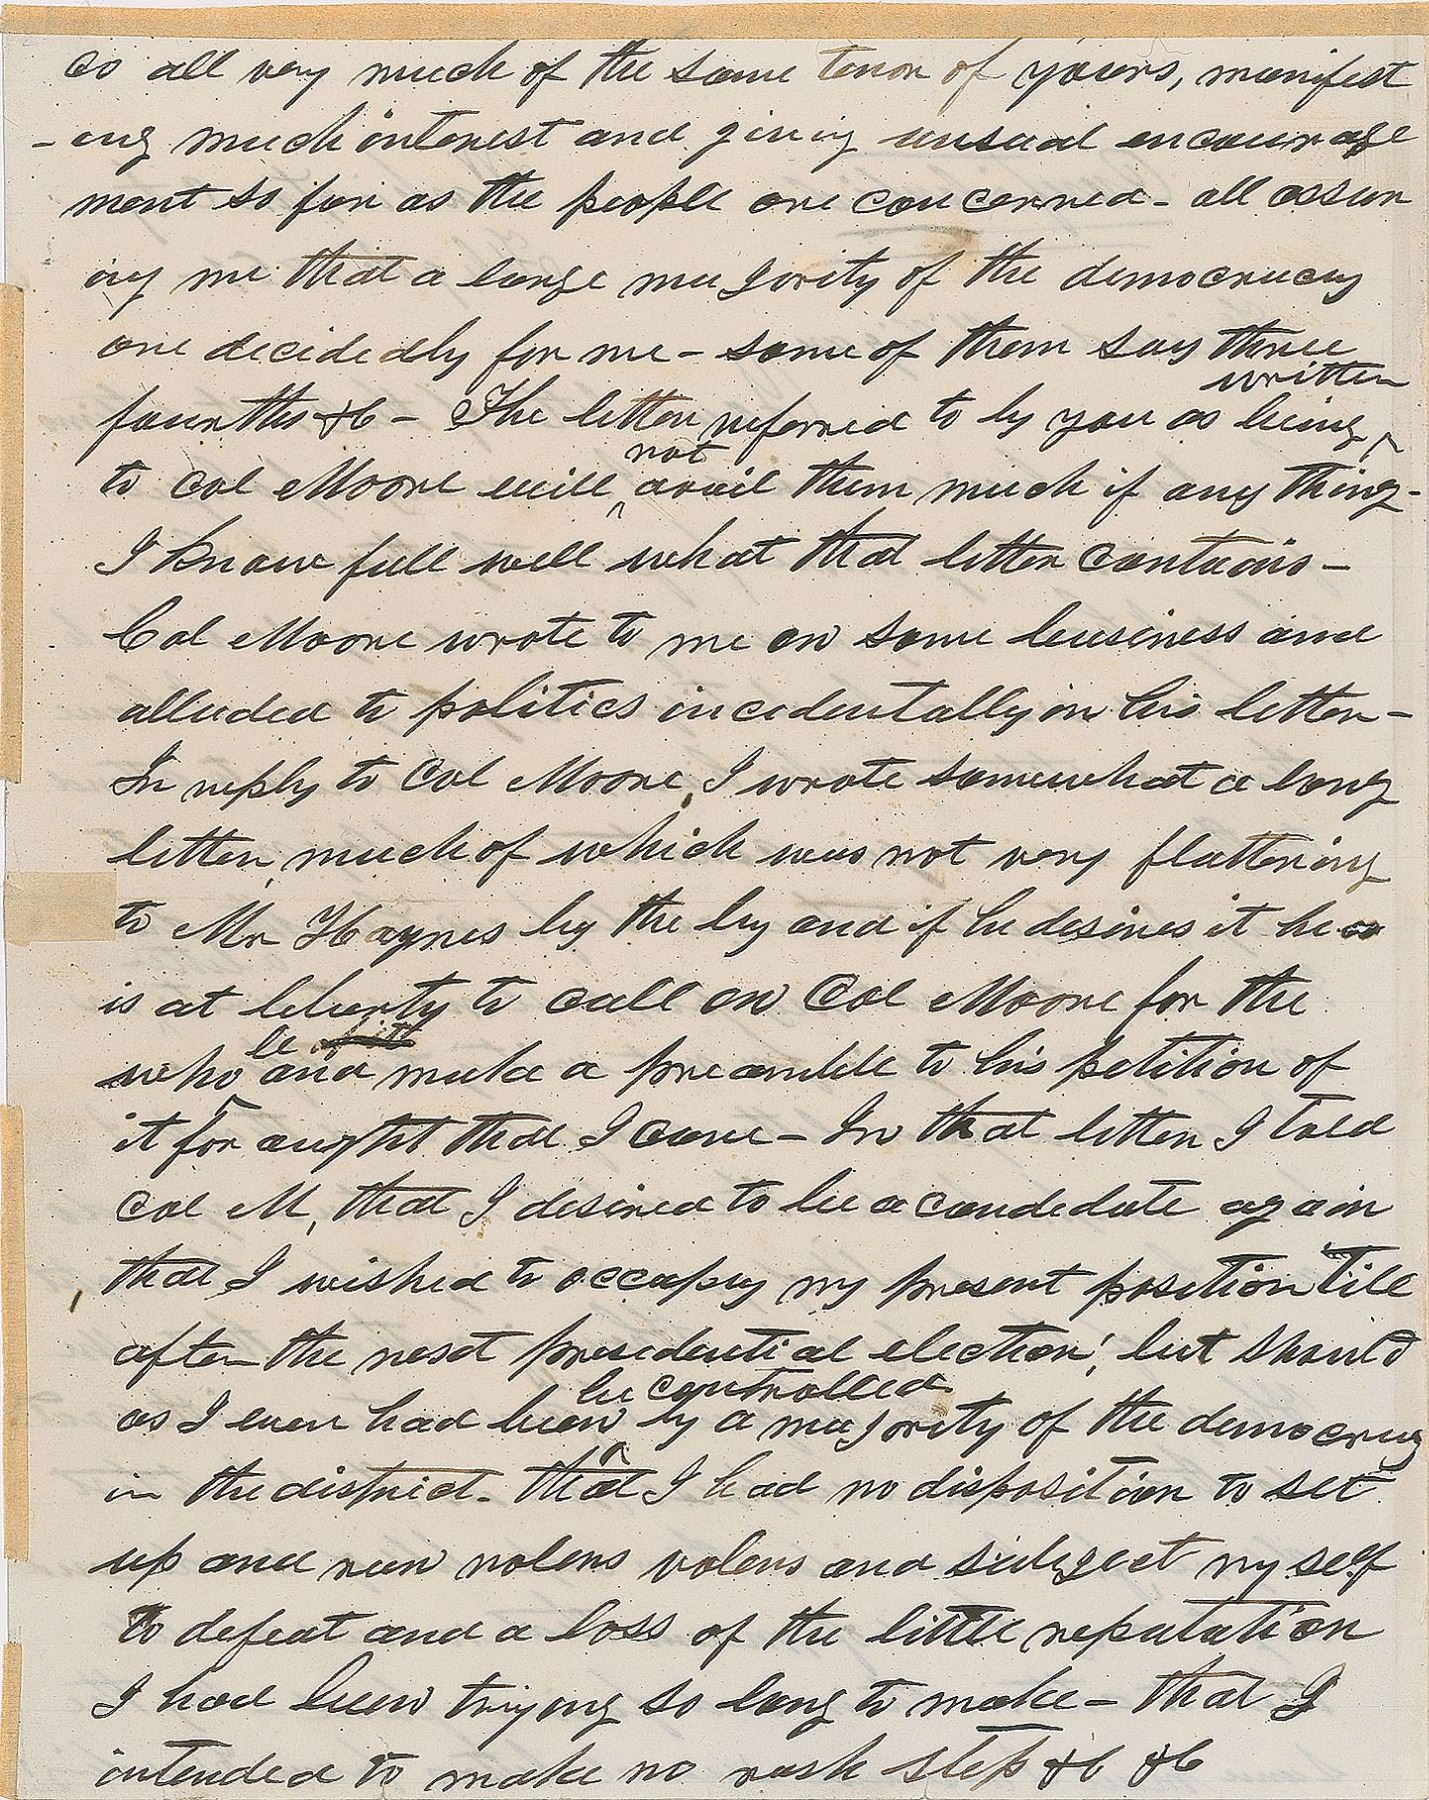 Co all very much of the same tenor of yours, manifest
-ing much interest and giving unsual encourage
ment so far as the people are concerned - all assur
ing me that a large majority of the democracy
are decidedly for me - some of them say three
fourths &c - The letter referred to by you as being ^written
to Col Moore will ^not avail them much if any thing -
I know full well what that letter contains -
Col Moore wrote to me on some business and
alluded to politics incedentally in his letter -
In reply to Col Moore, I wrote somewhat a long
letter, much of which was not very flattering
to Mr Haynes by the by and if he desires it he
is at liberty to call on Col Moore for the
whole and make a preamble to his petition of
it for aught that I care - In that letter I told
Col M, that I desired to be a candedate again
that I wished to occupy my present position till
after the next presedential election, but should
as I ever had been ^be controlled by a majority of the democracy
in the district - that I had no disposition to set
up and run nolens volens and subject my self
to defeat and a loss of the little reputation
I had been trying so long to make - that I
intended to make no rash step &c &c